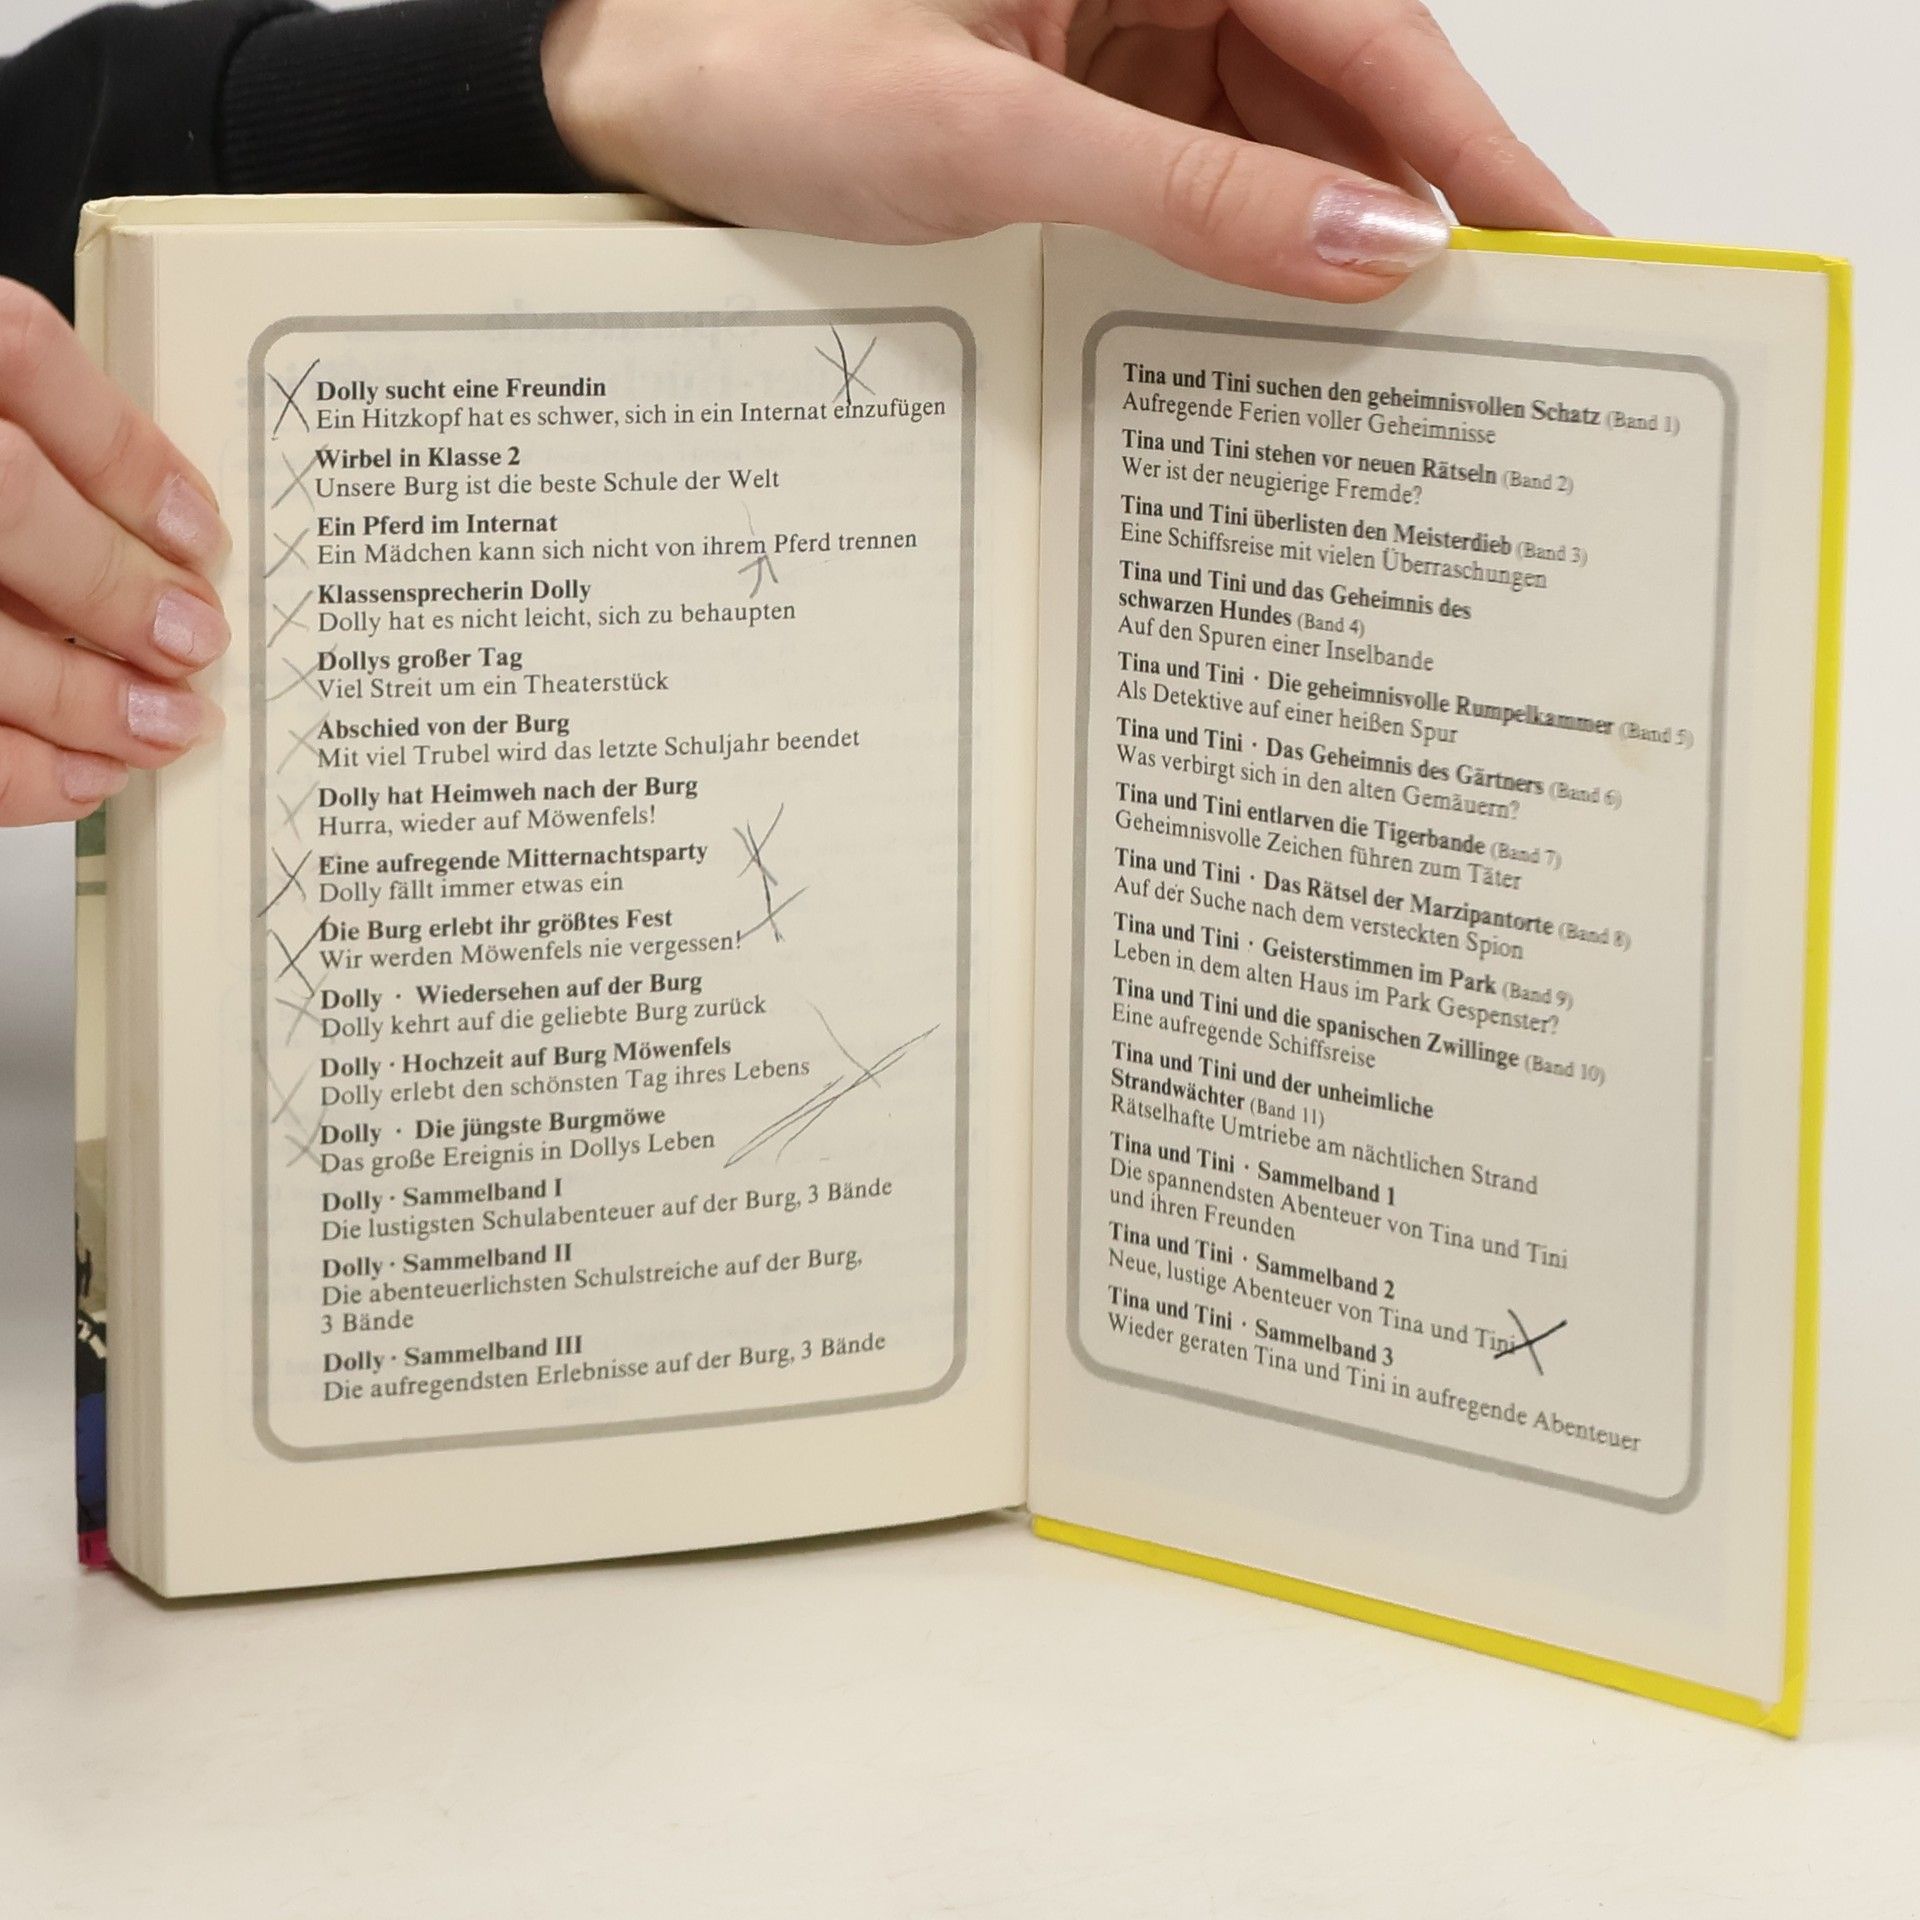 Dolly sucht eine Freundin
Ein Hitzkopf hat es schwer, sich in ein Internat einzufügen
Wirbel in Klasse 2
Unsere Burg ist die beste Schule der Welt
Ein Pferd im Internat
Ein Mädchen kann sich nicht von ihrem Pferd trennen
Klassensprecherin Dolly
Dolly hat es nicht leicht, sich zu behaupten
Dollys großer Tag
Viel Streit um ein Theaterstück
Abschied von der Burg
Mit viel Trubel wird das letzte Schuljahr beendet
Dolly hat Heimweh nach der Burg
Hurra, wieder auf Möwenfels!
Eine aufregende Mitternachtsparty
Dolly fällt immer etwas ein
Die Burg erlebt ihr größtes Fest
Wir werden Möwenfels nie vergessen!
Dolly · Wiedersehen auf der Burg
Dolly kehrt auf die geliebte Burg zurück
Dolly · Hochzeit auf Burg Möwenfels
Dolly erlebt den schönsten Tag ihres Lebens
Dolly · Die jüngste Burgmöwe
Das große Ereignis in Dollys Leben
Dolly · Sammelband I
Die lustigsten Schulabenteuer auf der Burg, 3 Bände
Dolly · Sammelband II
Die abenteuerlichsten Schulstreiche auf der Burg,
3 Bände
Dolly · Sammelband III
Die aufregendsten Erlebnisse auf der Burg, 3 Bände
Tina und Tini suchen den geheimnisvollen Schatz (Band 1)
Aufregende Ferien voller Geheimnisse
Tina und Tini stehen vor neuen Rätseln (Band 2)
Wer ist der neugierige Fremde?
Tina und Tini überlisten den Meisterdieb (Band 3)
Eine Schiffsreise mit vielen Überraschungen
Tina und Tini und das Geheimnis des
schwarzen Hundes (Band 4)
Auf den Spuren einer Inselbande
Tina und Tini · Die geheimnisvolle Rumpelkammer (Band 5)
Als Detektive auf einer heißen Spur
Tina und Tini · Das Geheimnis des Gärtners (Band 6)
Was verbirgt sich in den alten Gemäuern?
Tina und Tini entlarven die Tigerbande (Band 7)
Geheimnisvolle Zeichen führen zum Täter
Tina und Tini · Das Rätsel der Marzipantorte (Band 8)
Auf der Suche nach dem versteckten Spion
Tina und Tini · Geisterstimmen im Park (Band 9)
Leben in dem alten Haus im Park Gespenster?
Tina und Tini und die spanischen Zwillinge (Band 10)
Eine aufregende Schiffsreise
Tina und Tini und der unheimliche
Strandwächter (Band 11)
Rätselhafte Umtriebe am nächtlichen Strand
Tina und Tini · Sammelband 1
Die spannendsten Abenteuer von Tina und Tini
und ihren Freunden
Tina und Tini · Sammelband 2
Neue, lustige Abenteuer von Tina und Tini
Tina und Tini · Sammelband 3
Wieder geraten Tina und Tini in aufregende Abenteuer